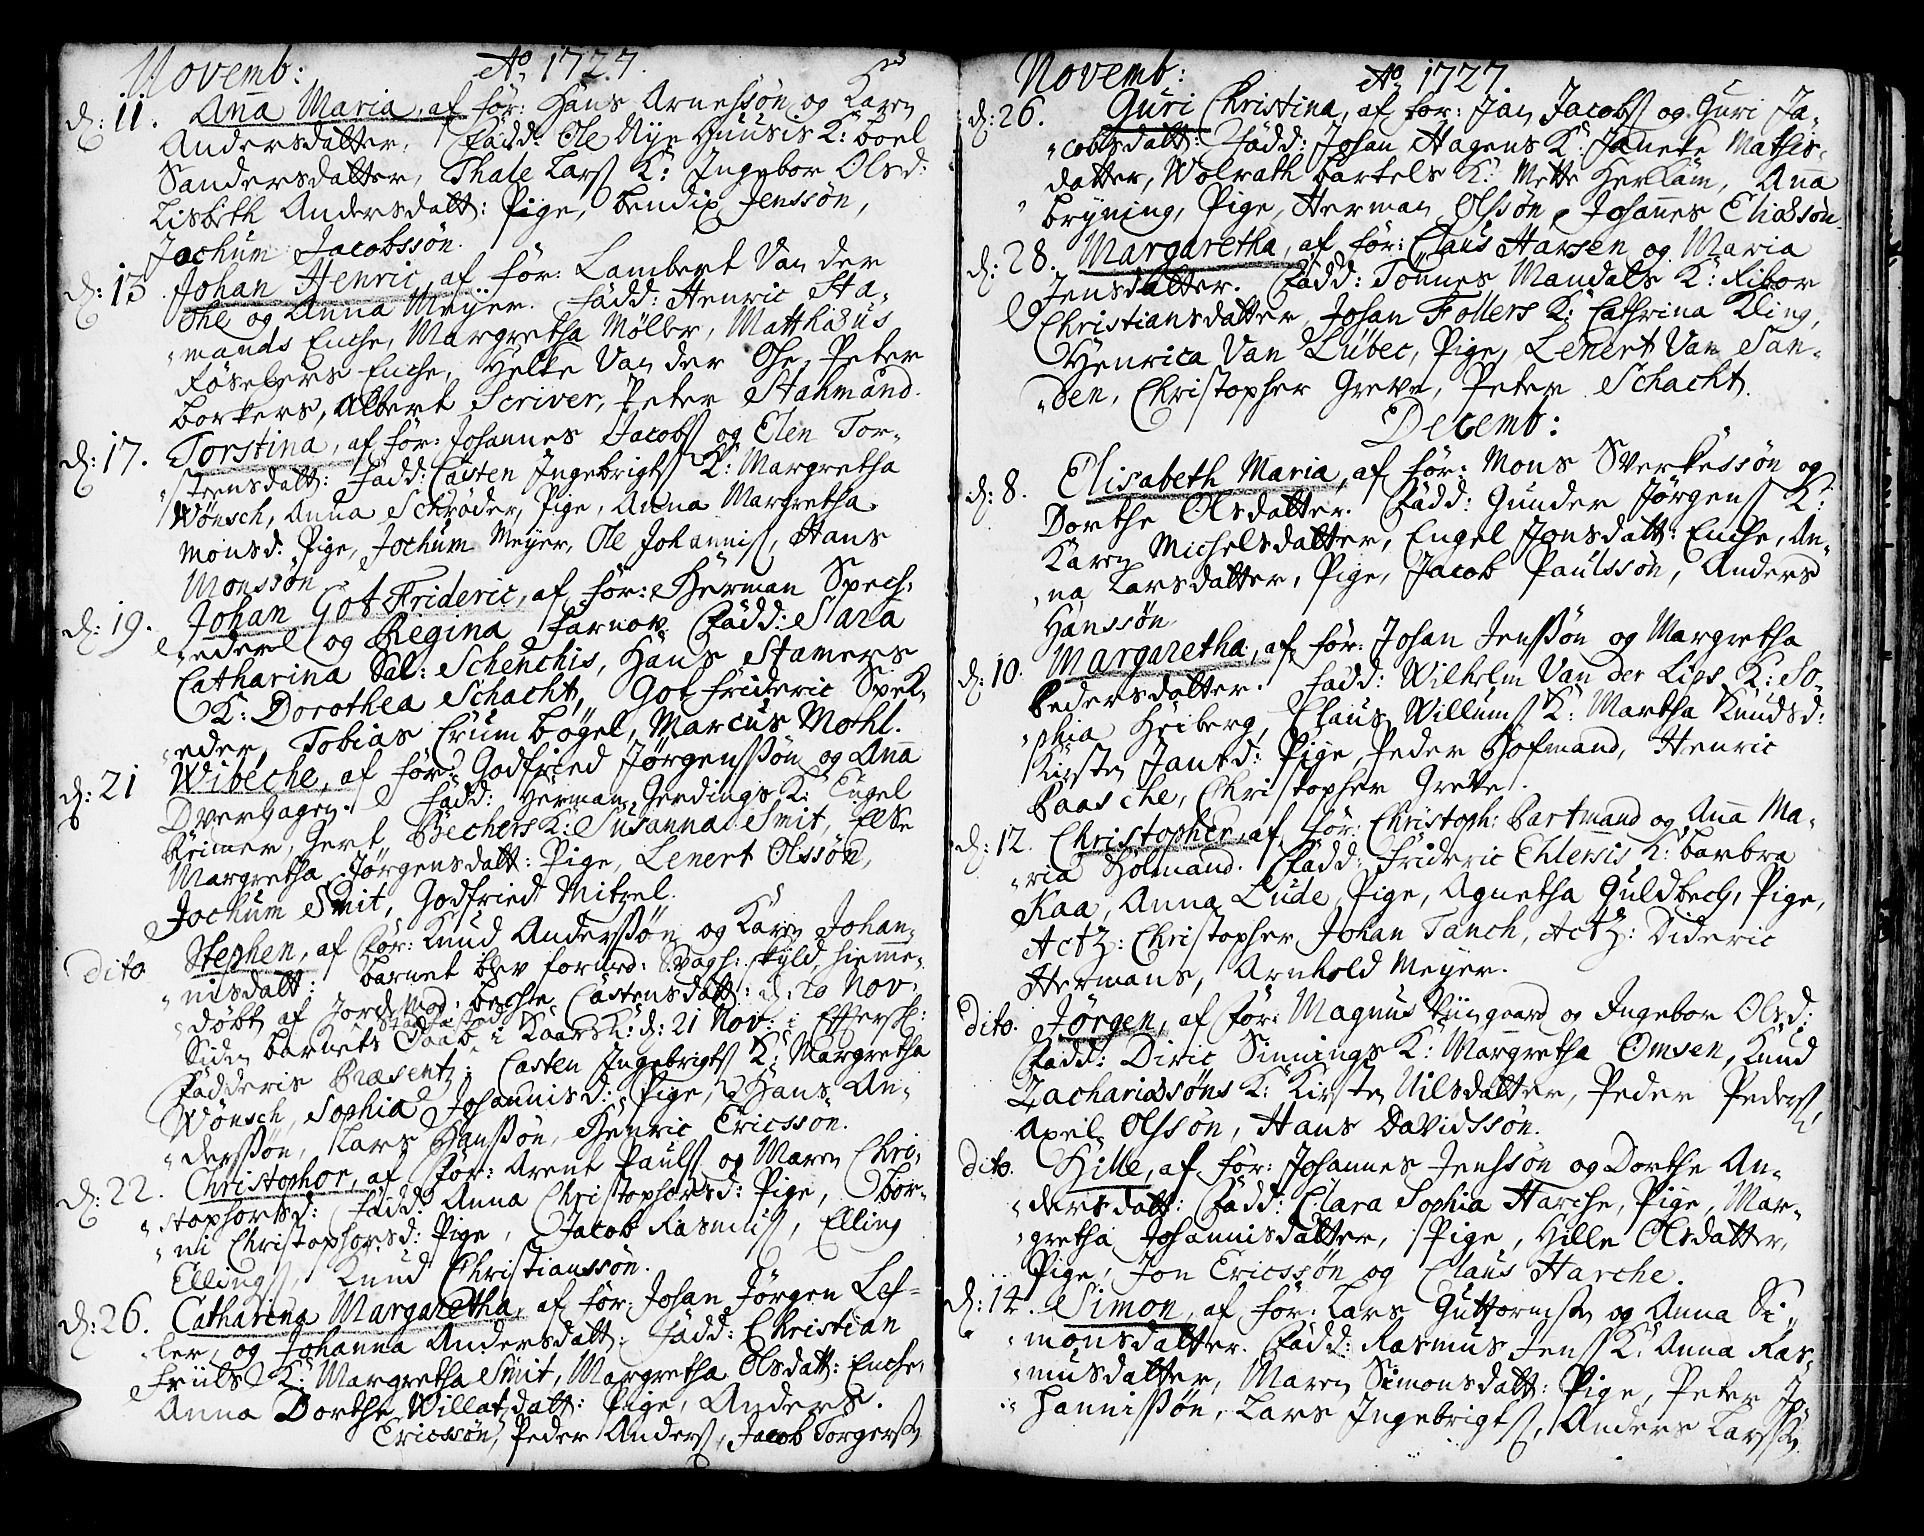 Novemb: Aº 1727.
d: 11. Aña Maria, af för: Hans Arnessön og Karen
Andersdatter, Fadd: Ole Nye Huusis K: Boel
Sandersdatter, Thale Lars K: Ingebor Olsd:
Lisbeth Andersdatt: Pige, Bendix Jenssön,
Jochum Jacobssön.
d: 13. Johan Henric, af för: Lambert Van der
Ohe og Anna Meyer. Fadd: Henric Sta-
mands Enche, Margretha Möller, Matthias
Röselers Enche, Helke Van der Ohe, Peter
Borkers, Albert Scriver, Peter Stahmand.
d: 17. Torstina, af för: Johannes Jacobs og Elen Tor-
steensdatt: Fadd: Casten Ingebrigts K: Margretha
Wönsch, Anna Schröder, Pige, Anna Margretha
Monsd: Pige, Jochum Meyer, Ole Johannis, Hans
Monssön
d: 19. Johan Got Frideric, af för: Herman Spech-
eder og Regina Farnov. Fadd: Sara
Catharina Sal: Schenchis, Hans Stamers
K: Dorothea Schacht, Got Frideric Spek-
eder, Tobias Crumbögel, Marcus Mohl.
d: 21 Wibeche, af för: Godfried Jörgenssön og Aña
Overhagen. Fadd: Herman Gerdings K: Engel
Reimer, Gert Bechers K: Susanna Smit, Else
Margretha Jörgensdatt: Pige, Lenert Olssön,
Jochum Smit, Godfried Mitzel.
dito Stephen, af för: Knud Anderssön og Karen Johan-
nisdatt: Barnet blev formed: Svagh: skyld hieme-
döbt af Jorde Mod: Bechte Castensdatt: d: 20 Nov:
Siden Barnets Daab i Kaars K: d: 21 Nov: i
Fadderis Præsentz: Casten Ingebrigts K: Margretha
Wönsch, Sophia Johannisd: Pige, Hans An-
derssön, Lars Hanssön, Henric Ericssön.
d: 22. Christophor, af för: Arent Pauls og Maren Chri-
stophorsd: Fadd: Anna Christophorsd: Pige, Bor-
ni Christophorsd: Pige, Jacob Rasmus, Elling
Ellings, Knud Christianssön.
d: 26. Catharina Margaretha, af för: Johan Jörgen Lef-
ler, og Johanna Andersdatt: Fadd: Christian
Friis K: Margretha Smit, Margretha Olsdatt: Enche,
Anna Dorthe Willatsdatt: Pige, Anders
Ericssön, Peder Anders, Jacob Torgerss
Novemb: Aº 1727
d: 26. Guri Christina, af för: Jan Jacobs og Guri Ja-
cobsdatt: Fadd: Johan Hagens K: Janeke Mathis-
datter, Wolrath Bartels K: Mette Herlam, Aña
Bryning, Pige, Herman Olssön, Johañes Eliassön.
d: 28. Margaretha, af för: Claus Hansen og Maria
Jensdatter. Fadd: Tönnes Mandals K: Ribor
Christiansdatter, Johan Follers K: Cathrina Kling,
Henrica Van Lübec, Pige, Lenert Van San-
den, Christopher Greve, Peter Schacht.
Decemb:
d: 8. Elisabeth Maria, af för: Mons Sverkessön og
Dorthe Olsdatter. Fadd: Gunder Jörgens K:
Karen Michelsdatter, Engel Jonsdatt: Enche, An-
na Larsdatter, Pige, Jacob Paulssön, Anders
Hanssön
d: 10. Margaretha, af för: Johan Jenssön og Margretha
Pedersdatter. Fadd: Wilhelm Van der Lips K: So-
phia Heiberg, Claus Willums K: Martha Knudsd:
Kirsten Jantd: Pige, Peder Hofmand, Henric
Paasche, Christopher Greke.
d: 12. Christopher, af för: Christoph: Partmand og Aña Ma-
ria Holmand. Fadd: Frideric Ehlersis K: Barbra
Kaa, Anna Lude, Pige, Agnetha Guldbech, Pige,
Actz: Christopher Johan Tanch, Actz: Dideric
Hermans, Arnhold Meyer.
dito. Jörgen, af för: Magnus Viingaard og Ingebor Olsd:
Fadd: Diric Sinnings K: Margretha Omsen, Knud
Zachariassöns K: Kirsten Nilsdatter, Peder Peders,
Axel Olssön, Hans Davidssön.
dito. Hille, af för: Johannes Jenssön og Dorthe An-
dersdatt: Fadd: Clara Sophia Harche, Pige, Mar-
gretha Johannisdatter, Pige, Hille Olsdatter,
Pige, Jon Ericssön og Claus Harche.
d: 14. Simon, af för: Lars Guttormss og Anna Si-
monsdatter. Fadd: Rasmus Jens K: Anna Ras-
musdatter, Maren Simonsdatt: Pige, Peter Jo-
hannissön, Lars Ingebrigts, Anders Larss